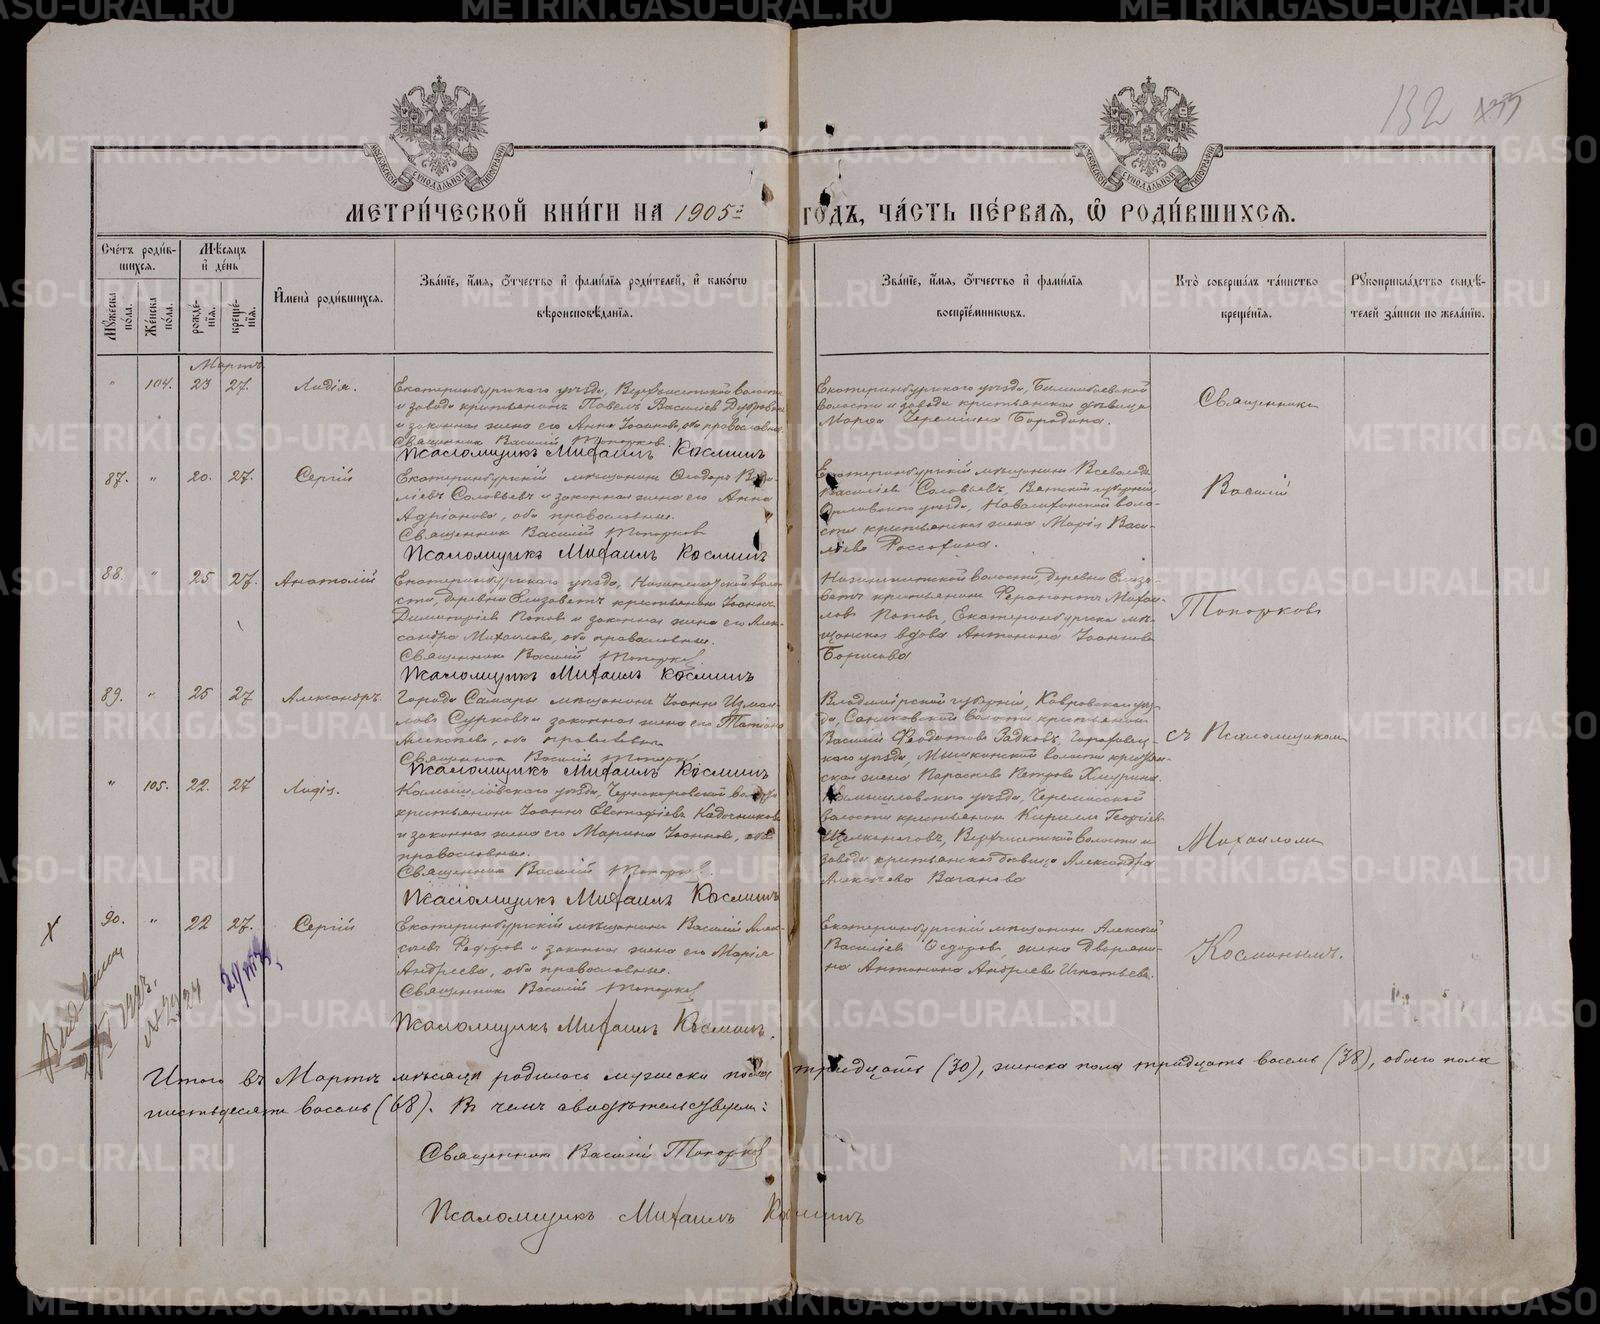 132
МЕТРИ́ЧЕСКОЙ КНИ́ГИ НА 1905й ГОДЪ, ЧА́СТЬ ПЕ́РВАЯ, Ѡ҆ РОДИ́ВШИХСЯ.
Счетъ роди́вшихся.
Мѣ́сяцъ и҆ де́нь
Мꙋжеска по́ла.
Же́нска по́ла.
рожде́нїя.
креще́нїя.
И҆мена̀ роди́вшихся.
Зва́нїе, и҆́мя, ѻ҆́тчество и҆ фами́лїя роди́телей, и҆ како́гѡ
вѣроисповѣ́данїя.
Зва́нїе, и҆́мя, ѻ҆́тчество и҆ фами́лїя
воспрїе́мниковъ.
Кто̀ соверша́лъ та́инство
креще́нїя.
Рꙋкоприкла́дство свидѣ́-
телей за́писи по жела́нїю.
Мартъ
" 104. 23 27. Лидія.
Екатеринбургскаго уѣзда, Верхъисетской волости
и завода крестьянинъ Павелъ Васильевъ
и законная жена его Анна Іоаннова, оба православные.
Священникъ Василій Топорковъ
Псаломщикъ Михаилъ Косминъ
Екатеринбургскаго уѣзда, Билимбаевской
волости и завода крестьянская дѣвица
Марѳа Бородина.
Священникъ
87. " 20. 27. Сергій
Екатеринбургскій мѣщанинъ Ѳеодоръ Васи-
льевъ Соловьевъ и законная жена его Анна
Адріанова, оба православные.
Священникъ Василій Топорковъ
Псаломщикъ Михаилъ Косминъ
Екатеринбургскій мѣщанинъ Всеволодъ
Васильевъ Соловьевъ, Вятской губерніи,
Орловскаго уѣзда, воло-
сти крестьянская жена Марія Васи-
льева
Василій
88. " 25 27. Анатолій
Екатеринбургскаго уѣзда, воло-
сти, деревни Елизаветъ крестьянинъ Іоаннъ
Димитріевъ Поповъ и законная жена его Алек-
сандра Михаилова, оба православные.
Священникъ Василій Топорковъ
Псаломщикъ Михаилъ Косминъ
волости, деревни Елиза-
ветъ крестьянинъ Михаи-
ловъ Поповъ, Екатеринбургская мѣ-
щанская вдова Антонина Іоаннова
Борисова
Топорковъ
89. " 25 27 Александръ.
Города Самары мѣщанинъ Іоаннъ Измаи-
ловъ Сурковъ и законная жена его Татіана
Алексѣева, оба православные.
Священникъ Василій Топорковъ
Псаломщикъ Михаилъ Косминъ
Владимірской губерніи, Ковровскаго уѣз-
да, Санниковской волости крестьянинъ
Василій Ѳеодотовъ Гороховец-
каго уѣзда, волости крестьян-
ская жена Параскева Петрова
съ Псаломщикомъ
" 105. 22 27 Лидія.
Камышловскаго уѣзда, волости
крестьянинъ Іоаннъ Евстафіевъ Кадочниковъ
и законная жена его Марина Іоаннова, оба
православные.
Священникъ Василій Топорковъ
Псаломщикъ Михаилъ Косминъ
Камышловскаго уѣзда,
волости крестьянинъ Кириллъ Георгіевъ
Верхъисетской волости и
завода крестьянская дѣвица Александра
Алексѣева Ваганова
Михаиломъ
90. " 22 27. Сергій
Екатеринбургскій мѣщанинъ Василій Алек-
сѣевъ Ѳедоровъ и законная жена его Марія
Андреева, оба православные.
Священникъ Василій Топорковъ
Псаломщикъ Михаилъ Косминъ.
Екатеринбургскій мѣщанинъ Алексѣй
Васильевъ Ѳедоровъ, жена дворяни-
на Антонина Андреева Игнатьева.
Косминымъ.
Итого въ Мартѣ мѣсяцѣ родилось мужеска пола тридцать (30), женска пола тридцать восемь (38), обоего пола
шестьдесятъ восемь (68). Въ чемъ свидѣтельствуемъ:
Священникъ Василій Топорковъ
Псаломщикъ Михаилъ Косминъ
METRIKI.GASO-URAL.RU